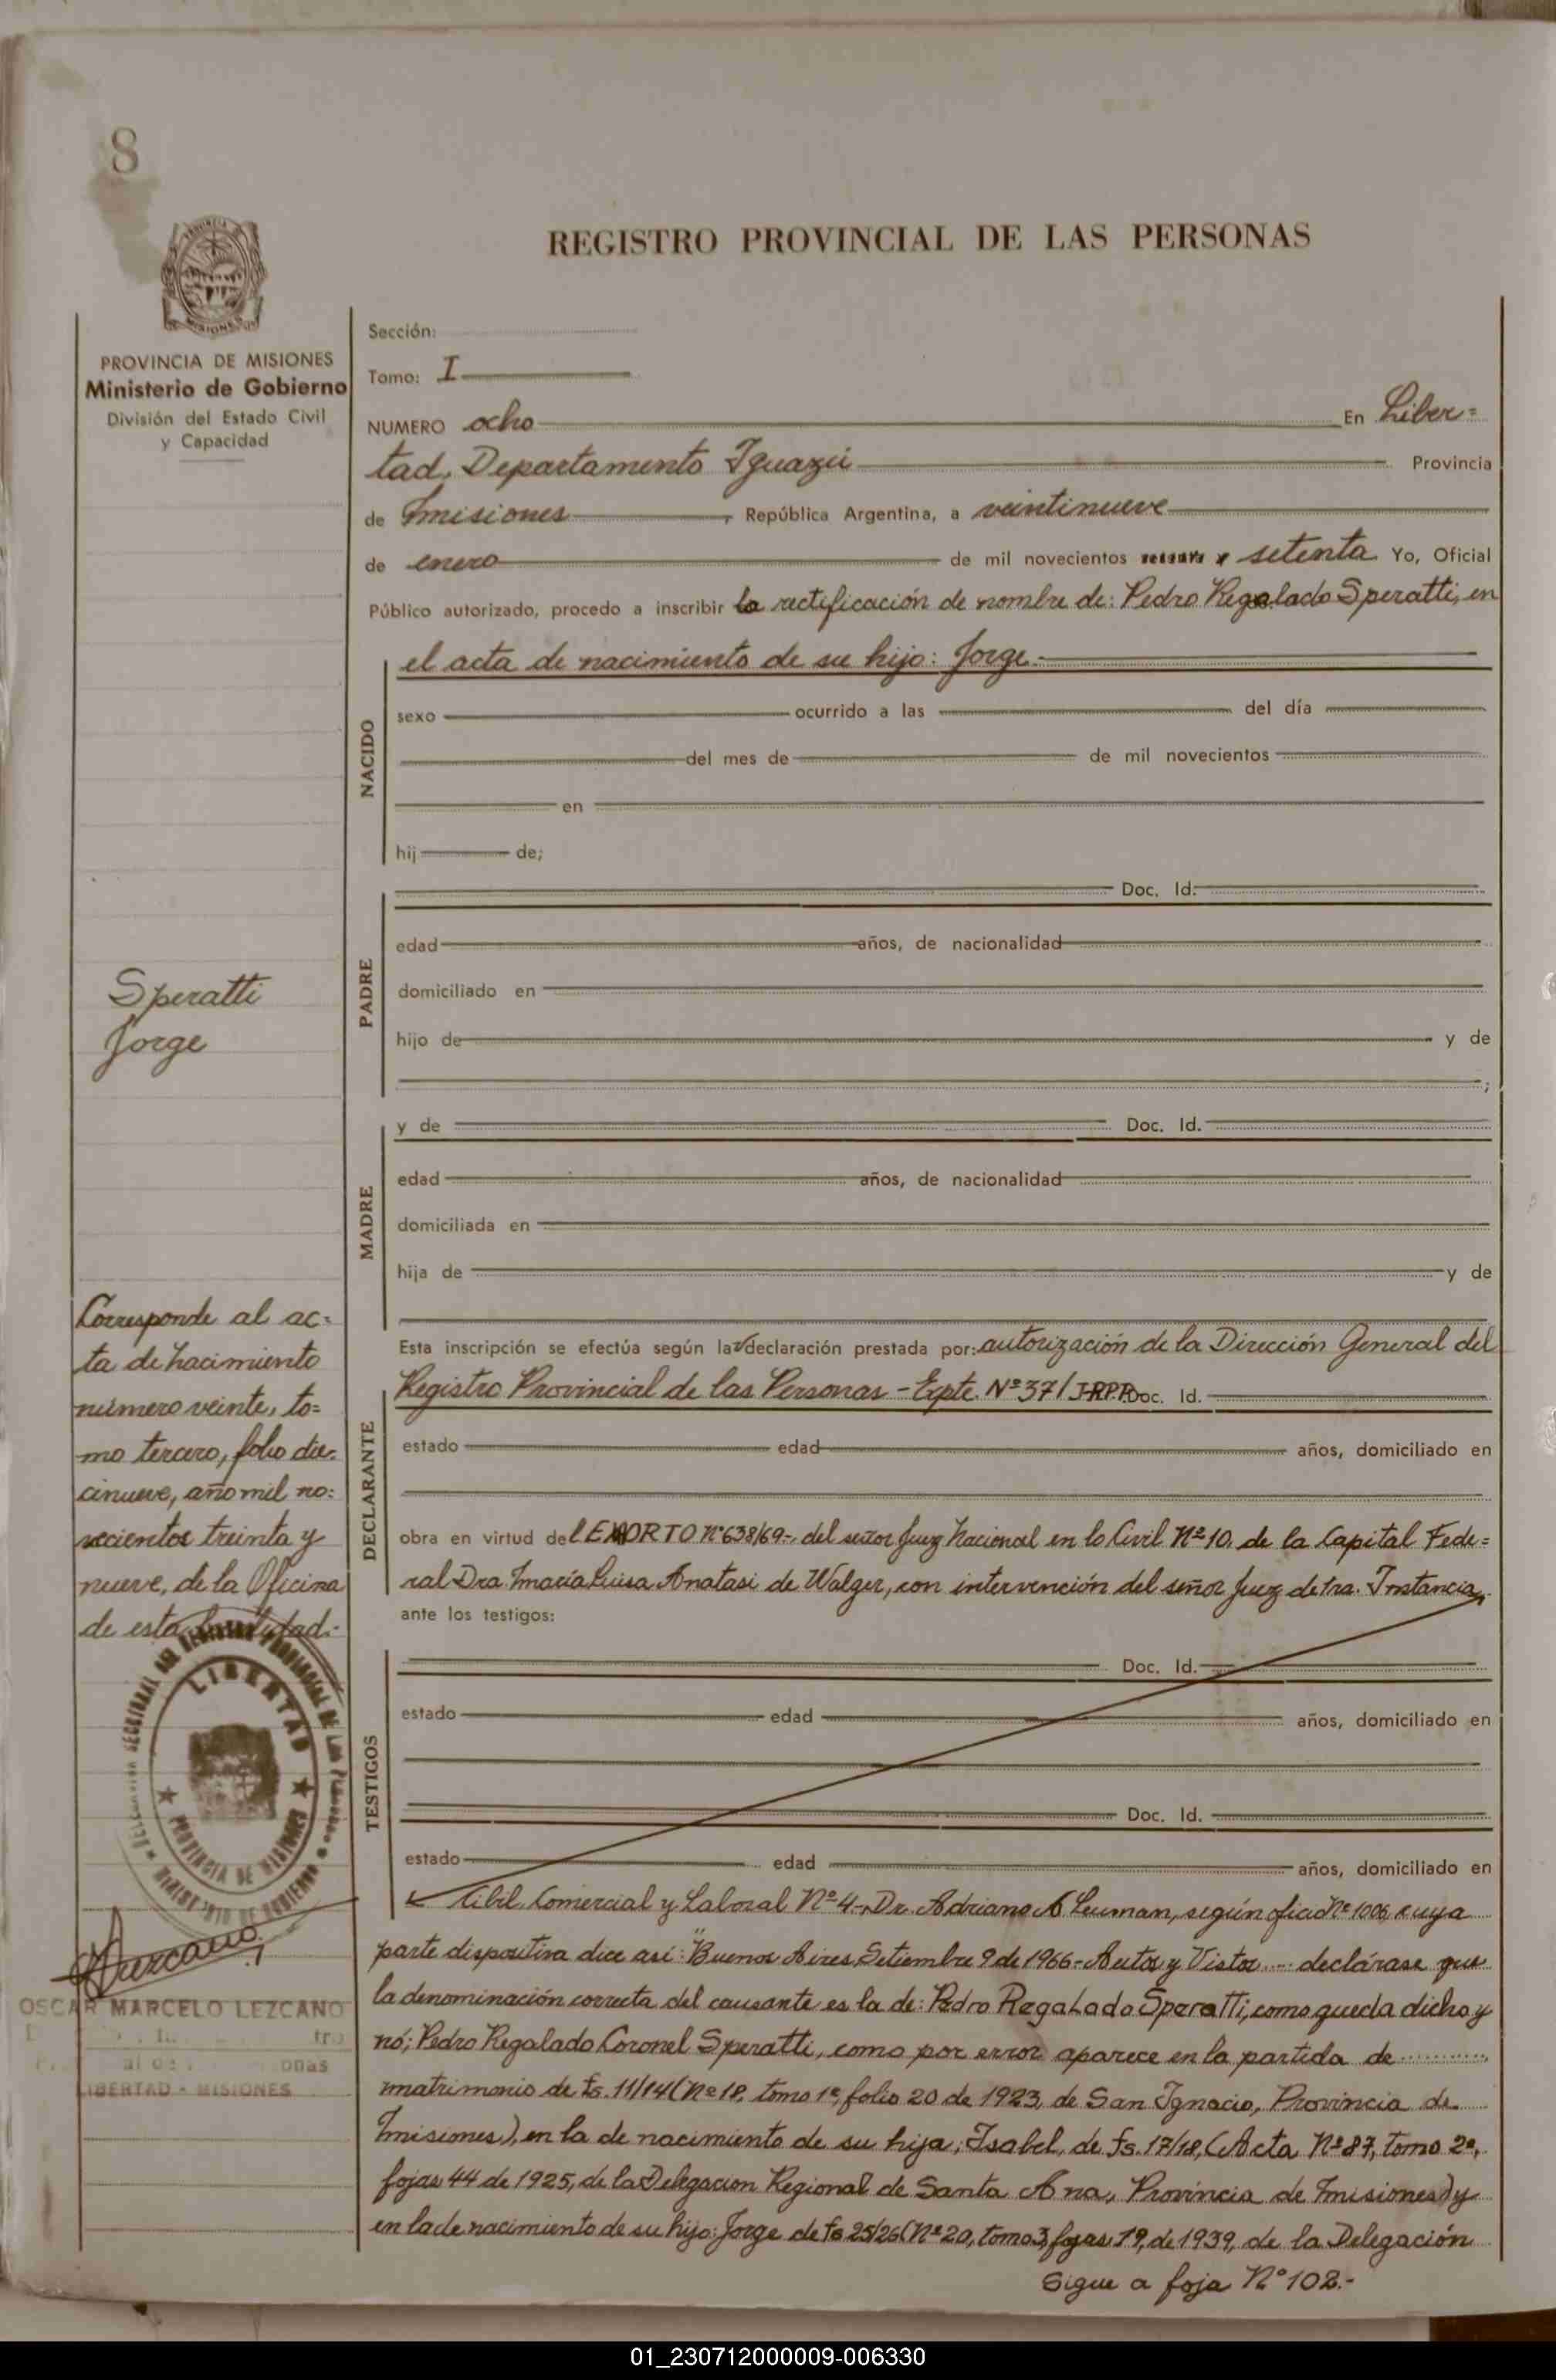 8
REGISTRO PROVINCIAL DE LAS PERSONAS
PROVINCIA DE MISIONES
Ministerio de Gobierno
División del Estado Civil
y Capacidad
Sección:
Tomo: I
NUMERO ocho En Liber=
tad, Departamento Iguazú Provincia
de Misiones, República Argentina, a veintinueve
de enero de mil novecientos setenta Yo, Oficial
Público autorizado, procedo a inscribir la rectificación de nombre de: Pedro Regalado Speratti, en
el acta de nacimiento de su hijo: Jorge.
NACIDO
sexo ocurrido a las del día
del mes de de mil novecientos
en
hij de;
PADRE
Doc. Id.
edad años, de nacionalidad
domiciliado en
hijo de y de
;
Speratti
Jorge
MADRE
y de Doc. Id.
edad años, de nacionalidad
domiciliada en
hija de y de
DECLARANTE
Esta inscripción se efectúa según la declaración prestada por: autorización de la Dirección General del
Registro Provincial de las Personas - Expte. Nº 37/ Doc. Id.
estado edad años, domiciliado en
obra en virtud del EXHORTO Nº 638/69-, del señor Juez Nacional en lo Civil Nº 10, de la Capital Fede=
ral Dra María Luisa Anatasi de Walger, con intervención del señor Juez de 1ra. Instancia,
ante los testigos:
Corresponde al ac=
ta de nacimiento
número veinte, to=
mo tercero, folio die=
cinueve, año mil no=
vecientos treinta y
nueve, de la Oficina
de esta localidad.-
TESTIGOS
Doc. Id.
estado edad años, domiciliado en
Doc. Id.
estado edad años, domiciliado en
LIBERTAD
PROVINCIA DE MISIONES
Lezcano
OSCAR MARCELO LEZCANO
LIBERTAD - MISIONES
Cibil, Comercial y Laboral Nº 4-, Dr. Adriano A Leuman, según oficio Nº 1006, cuya
parte dispositiva dice así: "Buenos Aires, Setiembre 9 de 1966.- Autos y Vistos .... declárase que
la denominación correcta del causante es la de: Pedro Regalado Speratti, como queda dicho y
nó; Pedro Regalado Coronel Speratti, como por error aparece en la partida de ..........
matrimonio de fs. 11/14 (Nº 18, tomo 1º, folio 20 de 1923, de San Ignacio, Provincia de
Misiones), en la de nacimiento de su hija; Isabel, de fs. 17/18, (Acta Nº 87, tomo 2º,
fojas 44 de 1925, de la Delegacion Regional de Santa Ana, Provincia de Misiones) y
en la de nacimiento de su hijo: Jorge de fs 25/26 (Nº 20, tomo 3, fojas 19, de 1939, de la Delegación
Sigue a foja Nº 102.-
01_230712000009-006330